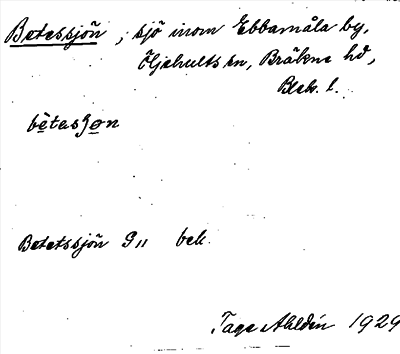 Betessjön, sjö inom Ebbamåla by,
Öljehults sn, Bräkne hd,
Blek. l.
bètasʃo̱n
Betetssjön G11 bek.
Tage Ahldén 1929